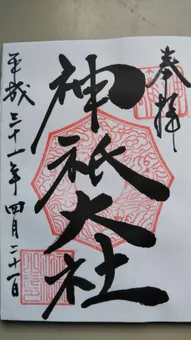 奉拝
神祇大社
平成三十一年四月二十一日